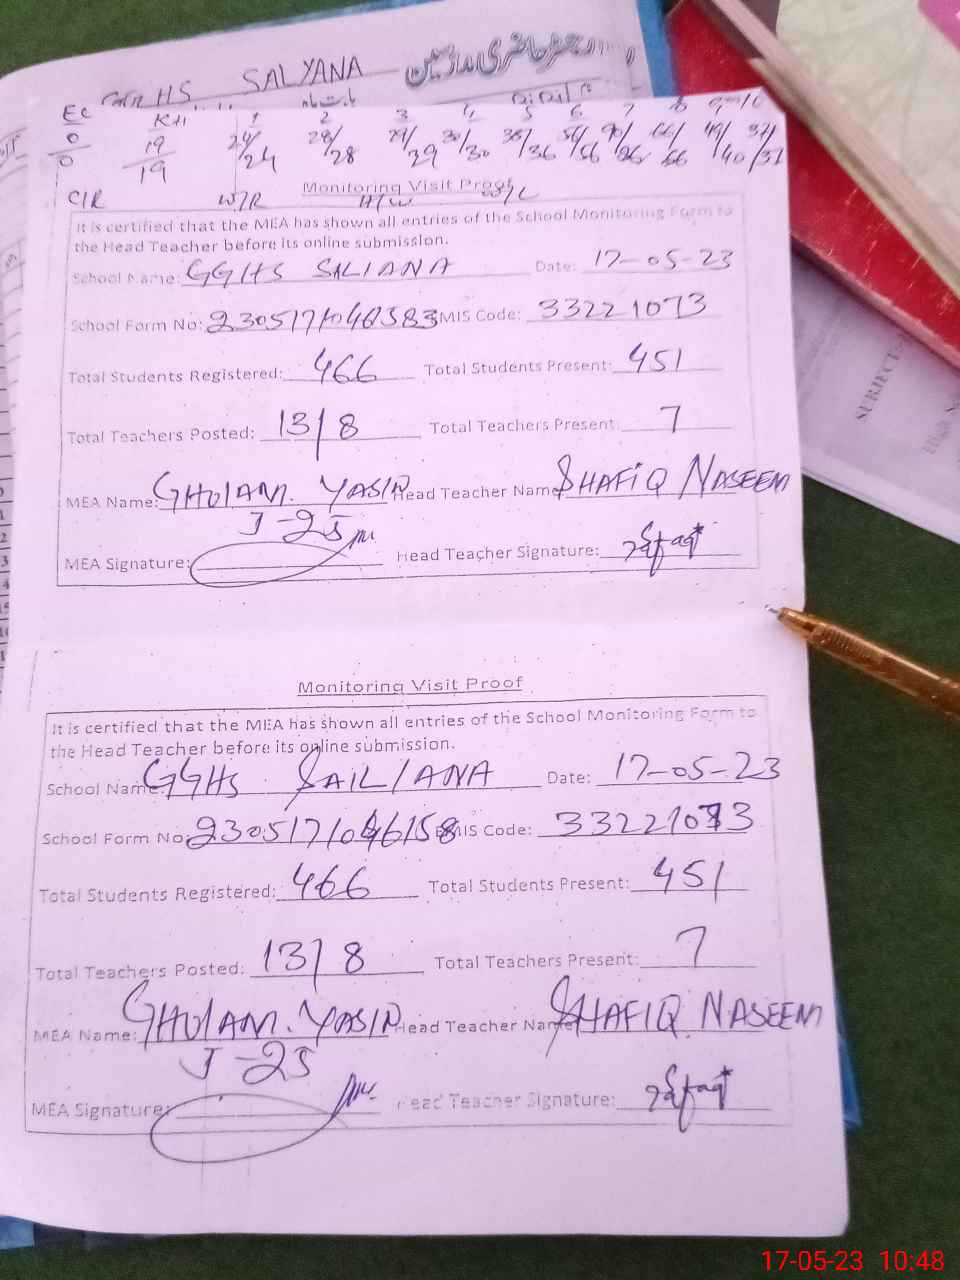 GGHS SALYANA رجسٹر حاضری ملازمین
بابت ماہ
Ec KHI 1 2 3 4 5 6 7 8 9 10
0/0 19/19 24/24 28/28 39/39 30/30 36/36 56/56 66/66 37/37
C/R W/R H/W
Monitoring Visit Proof
It is certified that the MEA has shown all entries of the School Monitoring Form to
the Head Teacher before its online submission.
School Name: GGHS SALIANA Date: 17-05-23
School Form No: EMIS Code: 33221073
Total Students Registered: 466 Total Students Present: 451
Total Teachers Posted: 13/8 Total Teachers Present: 7
MEA Name: GHULAM. YASIR Head Teacher Name SHAFIQ NASEEM
J-25
MEA Signature: Head Teacher Signature:
Monitoring Visit Proof
It is certified that the MEA has shown all entries of the School Monitoring Form to
the Head Teacher before its online submission.
School Name: GGHS SAILIANA Date: 17-05-23
School Form No: EMIS Code: 33221073
Total Students Registered: 466 Total Students Present: 451
Total Teachers Posted: 13/8 Total Teachers Present: 7
MEA Name: GHULAM. YASIR Head Teacher Name SHAFIQ NASEEM
J-25
MEA Signature: Head Teacher Signature:
SUBJECT
High
17-05-23 10:48